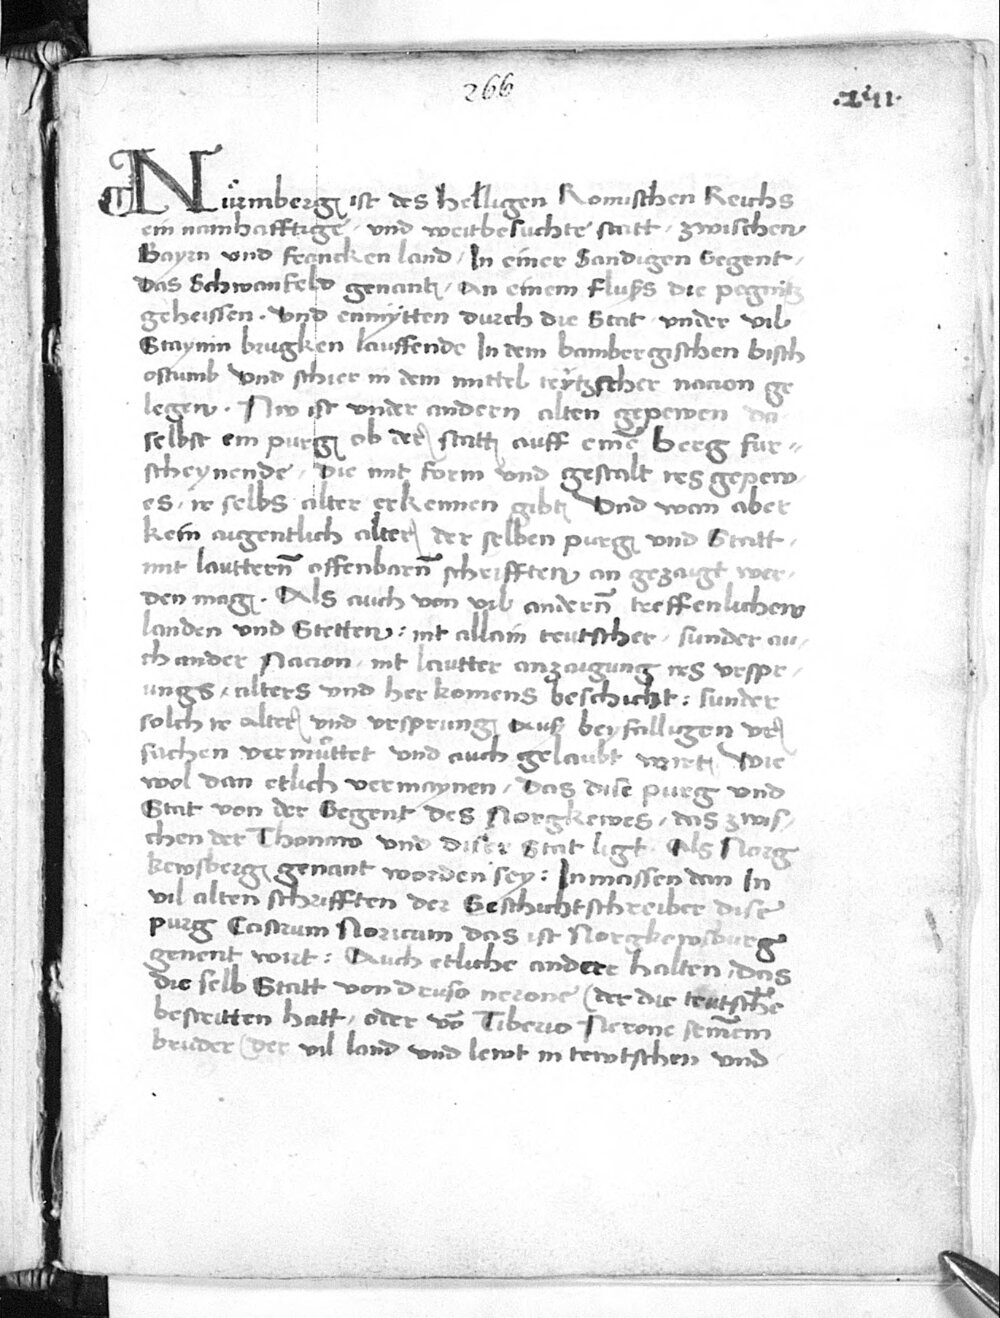 266
.Lvii.
Nürmberg ist des heiligen Romischen Reichs
ein namhafftige / und weitbesuchte statt / zwischen
Bayrn und francken land / In einer Sandigen Gegent /
Das Schwanfeld genant / An einem fluss die pegnitz
geheissen . Und enmytten durch die Stat under vil
Staynin brugken lauffende In dem bambergischen bisch
ostumb Und schier in dem mittel teytzscher nacion ge
legen . Nw ist under andern alten gepewen da
selbst ein purg ob der statt auff eine berg fur=
scheynende / Die mit form und gestalt irs gepew
es / ir selbs alter erkennen gibt Und wan aber
kein augentlich alter der selben purg und Statt /
mit lauttern offenbarn schrifften an gezaigt wer /
den mag . Als auch von vil andern treffenlichen
landen und Stetten : nit allain teutscher / sunder au /
ch ander Nacion / nit lautter anzaigung irs urspr /
ungs / alters und herkomens beschicht : sunder
solch ir alter und ursprung Auß beyfalligen ur
sachen vermuttet und auch gelaubt wirt Wie
wol dan etlich vermaynen / Das dise purg und
Stat von der Gegent des Norgkewes / das zwis /
chen der Thonaw und diser Stat ligt Als Norg
kewsberg genant worden sey : Inmassen dan In
vil alten schrifften der Geschichtschreiber dise
purg Castrum Noricum das ist Norgkewsburg
genent wirt : Auch etliche anderr halten / das
die selb Statt von druso nerone (der die teutsche
bestritten hatt / oder vo Tiberio Nerone seinem
bruder (der vil land und lewt in tewtschen und